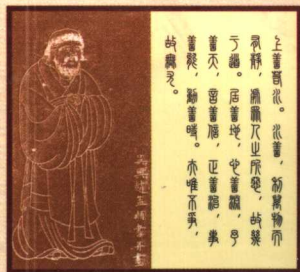 上善若水。水善，利萬物而
有靜，居眾人之所惡，故幾
于道。居善地，心善淵，予
善天，言善信，正善治，事
善能，動善時。夫唯不爭，
故無尤。